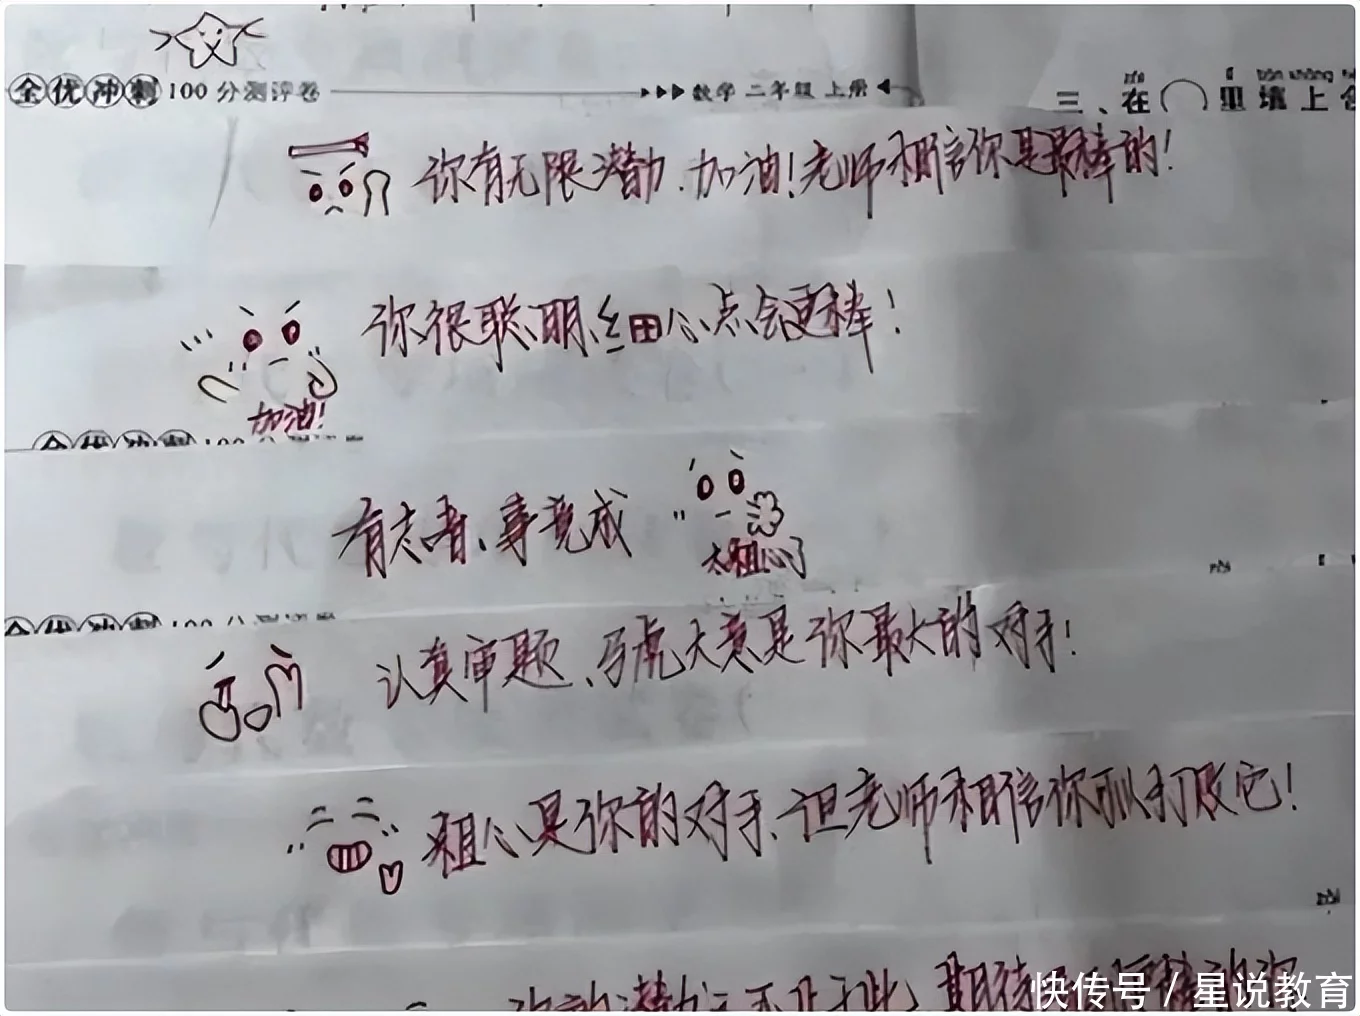 全优冲刺100分测评卷 数学 二年级 上册
三、在( )里填上
你有无限潜力、加油!老师相信你是最棒的!
你很聪明,细心点会更棒!
加油!
有志者、事竟成
太粗心了
认真审题、马虎大意是你最大的对手!
粗心是你的对手、但老师相信你可以打败它!
你的潜力不止于此、期待
快传号 / 星说教育